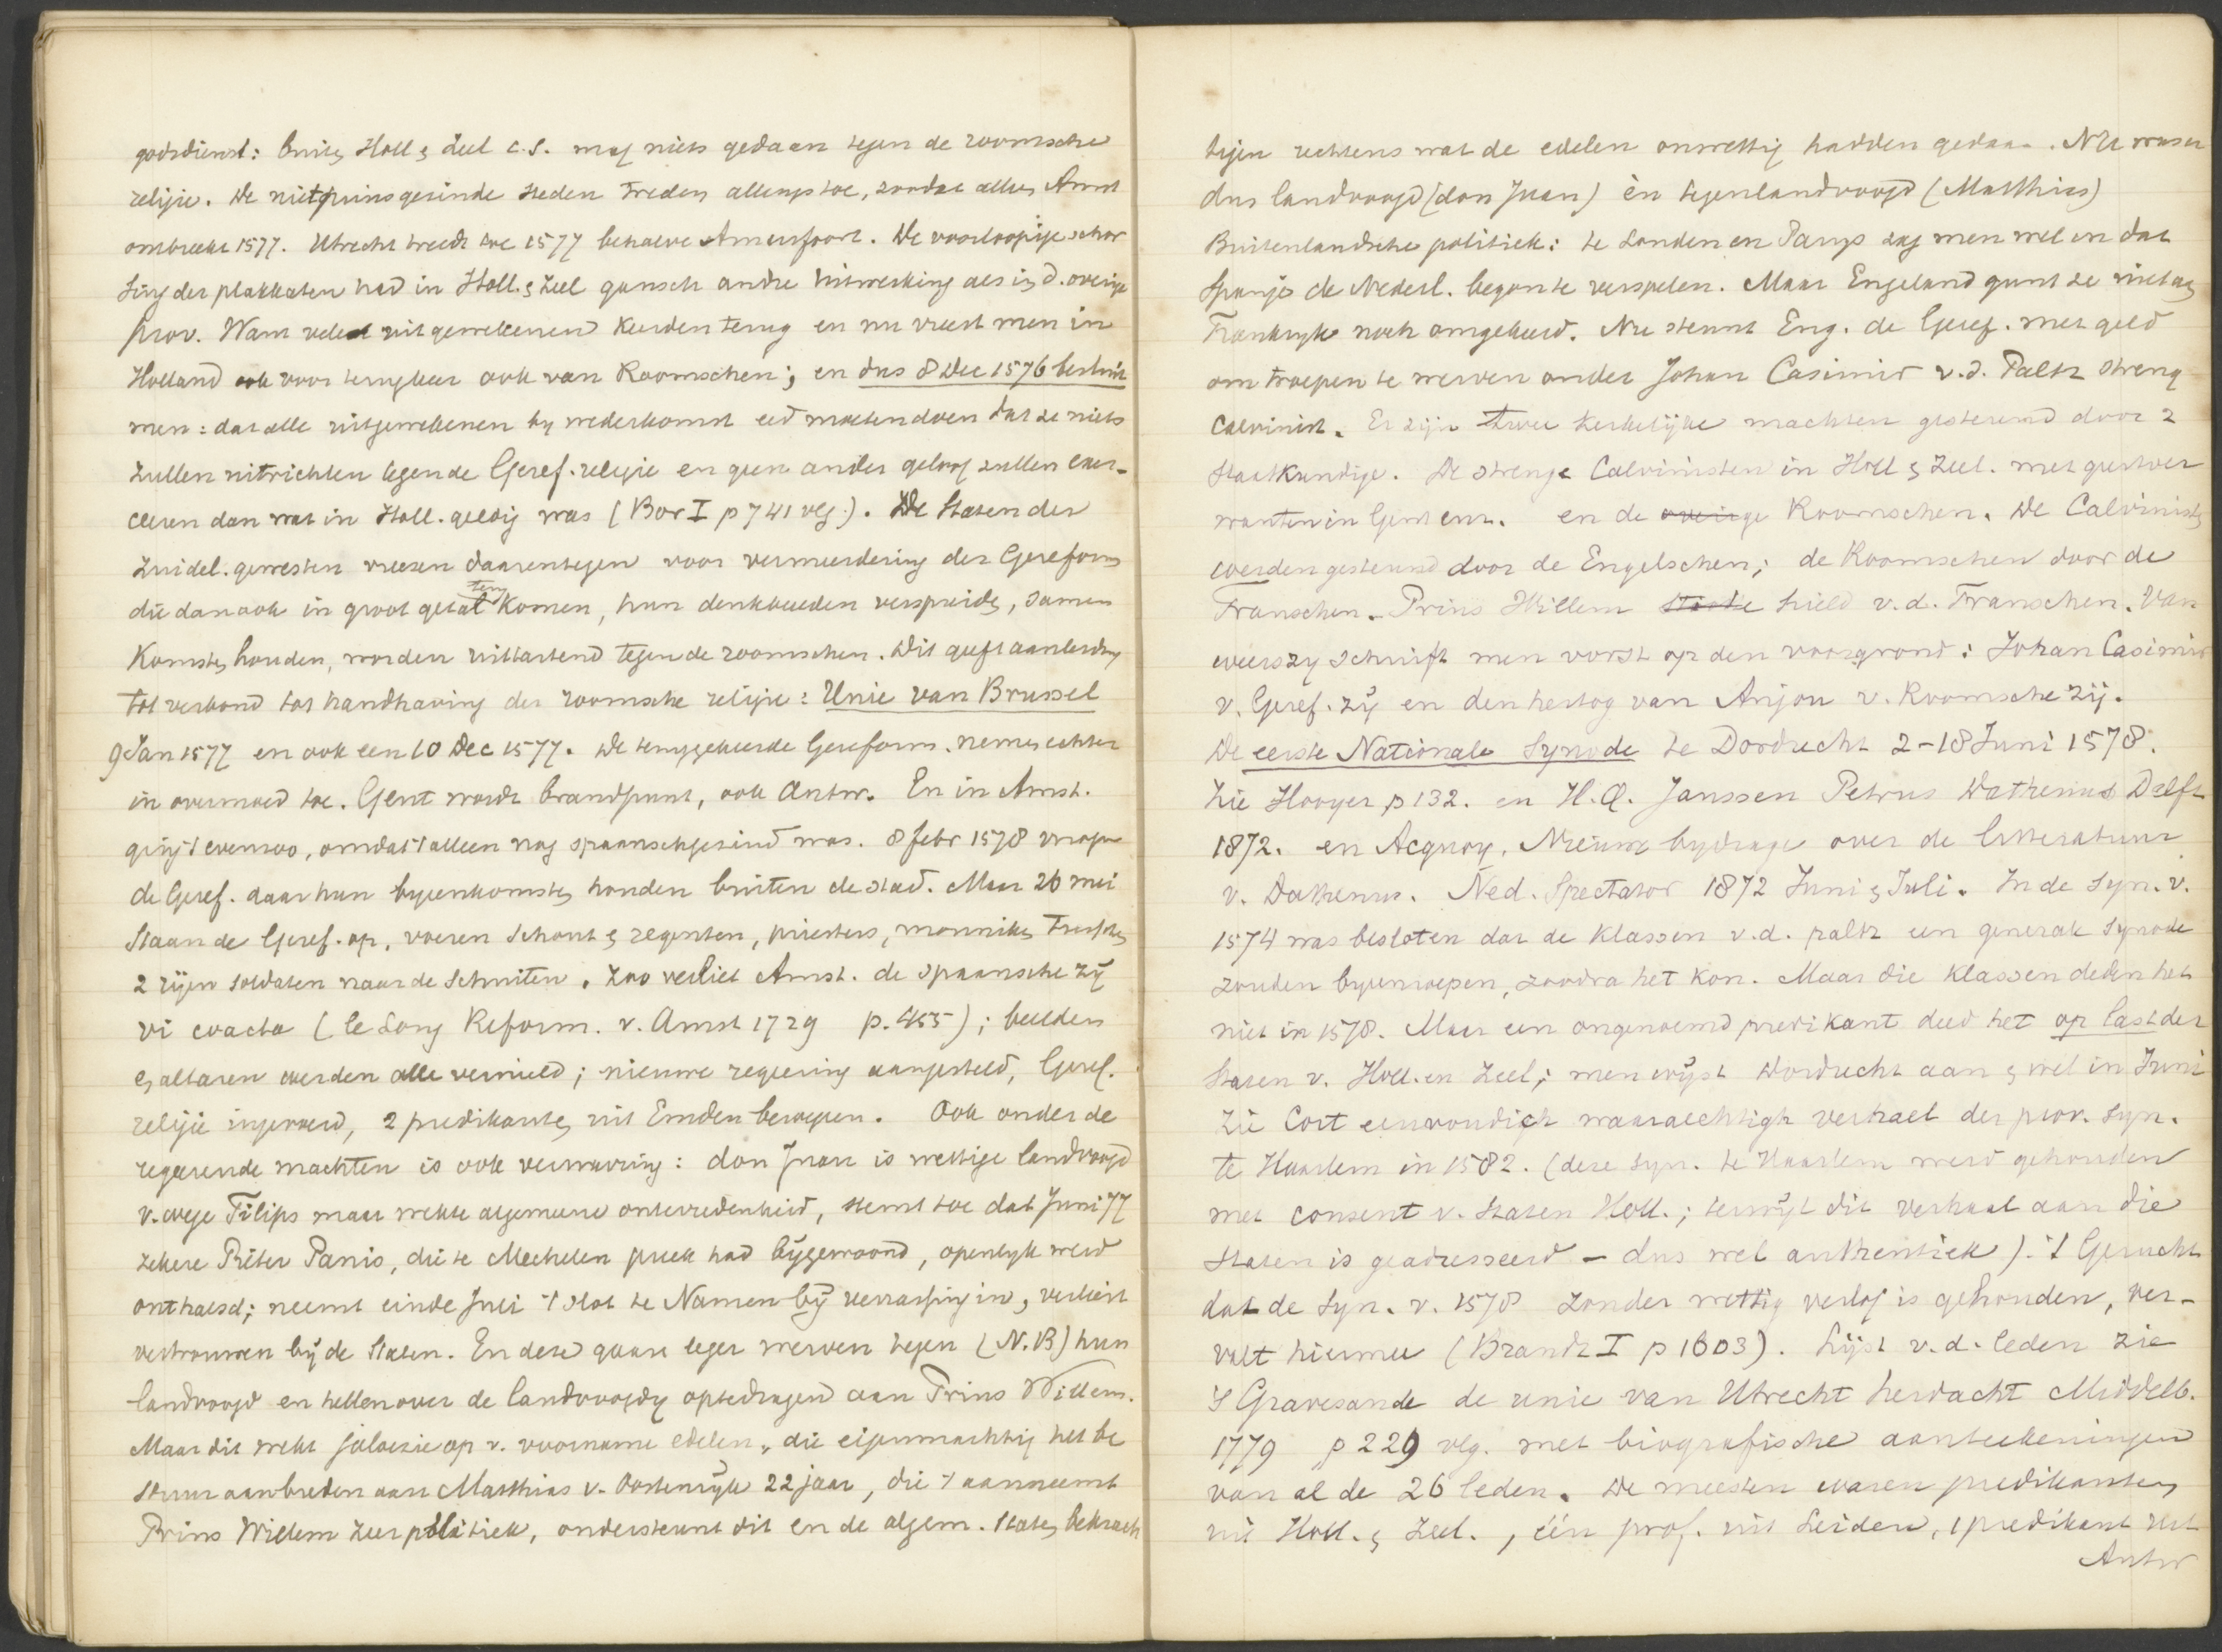 godsdienst: buiten Holl & Zeel c.s. mag niets gedaan tegen de roomsche
religie. De nietprinsgezinde steden treden allengs toe, zoodat alleen Amst
ontbreekt 1577. Utrecht treedt toe 1577 behalve Amersfoort. De voorloopige schor
sing der plakkaten had in Holl. & Zeel gansch andre uitwerking als in d. overige
prov. Want vele uitgewekenen keerden terug en nu vreest men in
Holland ook voor terugkeer ook van Roomschen; en dus 8 Dec 1576 besluit
men: dat alle uitgewekenen by wederkomst eed moeten doen dat ze niets
zullen uitrichten tegen de Geref. religie en geen ander geloof zullen exer-
ceeren dan wat in Holl. geldig was (Bor I p 741 vlg.). De Staten der
Zuidel. gewesten vreezen daarentegen voor vermeerdering der Gereform
die dan ook in groot getal terug komen, hun denkbeelden verspreiden, samen
komsten houden, worden uittartend tegen de roomschen. Dit geeft aanleiding
tot verbond tot handhaving der roomsche religie: Unie van Brussel
9 Jan 1577 en ook een 10 Dec 1577. De teruggekeerde Gereform. nemen echter
in overmoed toe. Gent wordt brandpunt, ook Antw. En in Amst.
ging 't evenzoo, omdat 't alleen nog spaanschgezind was. 8 febr 1578 vragen
de Geref. daar hun byeenkomsten houden buiten de stad. Maar 26 mei
staan de Geref. op, voeren Schout & regenten, priesters, monniken tusschen
2 rijen soldaten naar de Schuiten. Zoo verliet Amst. de spaansche zij
vi coacta (le Long Reform. v. Amst 1729 p. 455); beelden
en altaren werden alle vernield; nieuwe regeering aangesteld, Geref.
religie ingevoerd, 2 predikanten uit Emden beroepen. Ook onder de
regeerende machten is ook verwarring: don Juan is wettige landvoogd
v. wege Filips maar wekte algemeene ontevredenheid, stemt toe dat Juni 77
zekere Pieter Panis, die te Mechelen preek had bijgewoond, openlyk werd
onthalsd; neemt einde Juli 't slot te Namen bij verrassing in, verliest
vertrouwen bij de Staten. En deze gaan leger werven tegen (N.B) hun
landvoogd en hellen over de landvoogdy optedragen aan Prins Willem.
Maar dit wekt jaloezie op v. voorname edelen, die eigenmachtig het be
stuur aanbieden aan Matthias v. Oostenryk 22 jaar, die 't aanneemt
Prins Willem zeer politiek, ondersteunt dit en de algem. Staten bekrach
tigen rechtens wat de edelen onwettig hadden gedaan. Nu was er
dus landvoogd (don Juan) èn tegenlandvoogd (Matthias)
Buitenlandsche politiek: te Londen en Parys zag men wel in dat
Spanje de Nederl. begon te verspelen. Maar Engeland gunt ze niet aan
Frankryk noch omgekeerd. Nu steunt Eng. de Geref. met geld
om troepen te werven onder Johan Casimir v.d. Paltz streng
Calvinist. Er zijn twee kerkelijke machten gesteund door 2
staatkundige. De strenge Calvinisten in Holl & Zeel. met geestver
wanten in Gent enz. en de overige Roomschen. De Calvinisten
werden gesteund door de Engelschen; de Roomschen door de
Franschen. Prins Willem hield v.d. Franschen. Van
weerszy schuift men vorst op den voorgrond: Johan Casimir
v. Geref. zij en den hertog van Anjou v. Roomsche zij.
De eerste Nationale Synode te Dordrecht 2-18 Juni 1578.
Zie Hooyer p 132. en H.Q. Janssen Petrus Dathenus Delft
1872. en Acquoy, Nieuwe bydrage over de litteratuur
v. Dathenus. Ned. Spectator 1872 Juni & Juli. In de Syn. v.
1574 was besloten dat de klassen v.d. paltz een generale synode
zouden byeenroepen, zoodra het kon. Maar die klassen deden het
niet in 1578. Maar een ongenoemd predikant deed het op last der
Staten v. Holl. en Zeel; men wijst Dordrecht aan & wel in Juni
Zie Cort eenvoudigh waarachtigh verhael der prov. syn.
te Haarlem in 1582. (deze syn. te Haarlem werd gehouden
met consent v. Staten Holl.; terwijl dit verhaal aan die
Staten is geadresseerd - dus wel authentiek). 't Gerucht
dat de Syn. v. 1578 zonder wettig verlof is gehouden, ver-
valt hiermee (Brandt I p 1603). Lijst v.d. leden zie
's Gravesande de unie van Utrecht herdacht Middelb.
1779 p 229 vlg. met biografische aanteekeningen
van al de 26 leden. De meesten waren predikanten
uit Holl. & Zeel., één prof. uit Leiden, 1 predikant uit
Antw